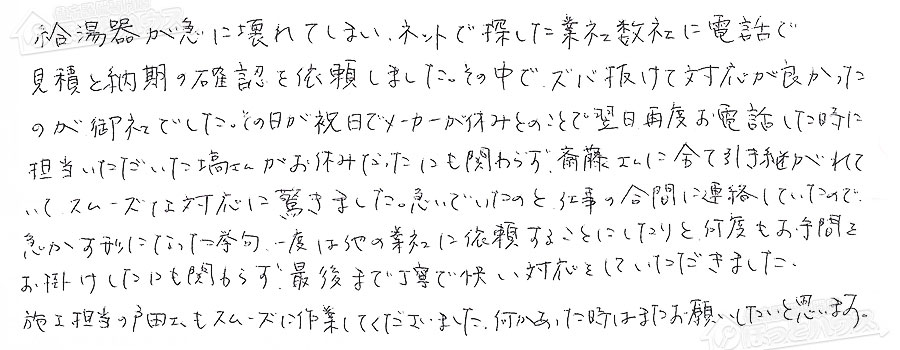 給湯器が急に壊れてしまい、ネットで探した業社数社に電話で
見積と納期の確認を依頼しました。その中で、ズバ抜けて対応が良かった
のが御社でした。その日が祝日でメーカーが休みとのことで翌日再度お電話した時に
担当いただいた塙さんがお休みだったにも関わらず、斎藤さんに全て引き継がれて
いて、スムーズな対応に驚きました。急いでいたのと、仕事の合間に連絡していたので、
急かす形になった挙句、一度は他の業社に依頼することにしたりと、何度もお手間を
お掛けしたにも関わらず、最後まで丁寧で快い対応をしていただきました。
施工担当の戸田さんもスムーズに作業してくださいました。何かあった時はまたお願いしたいと思います。